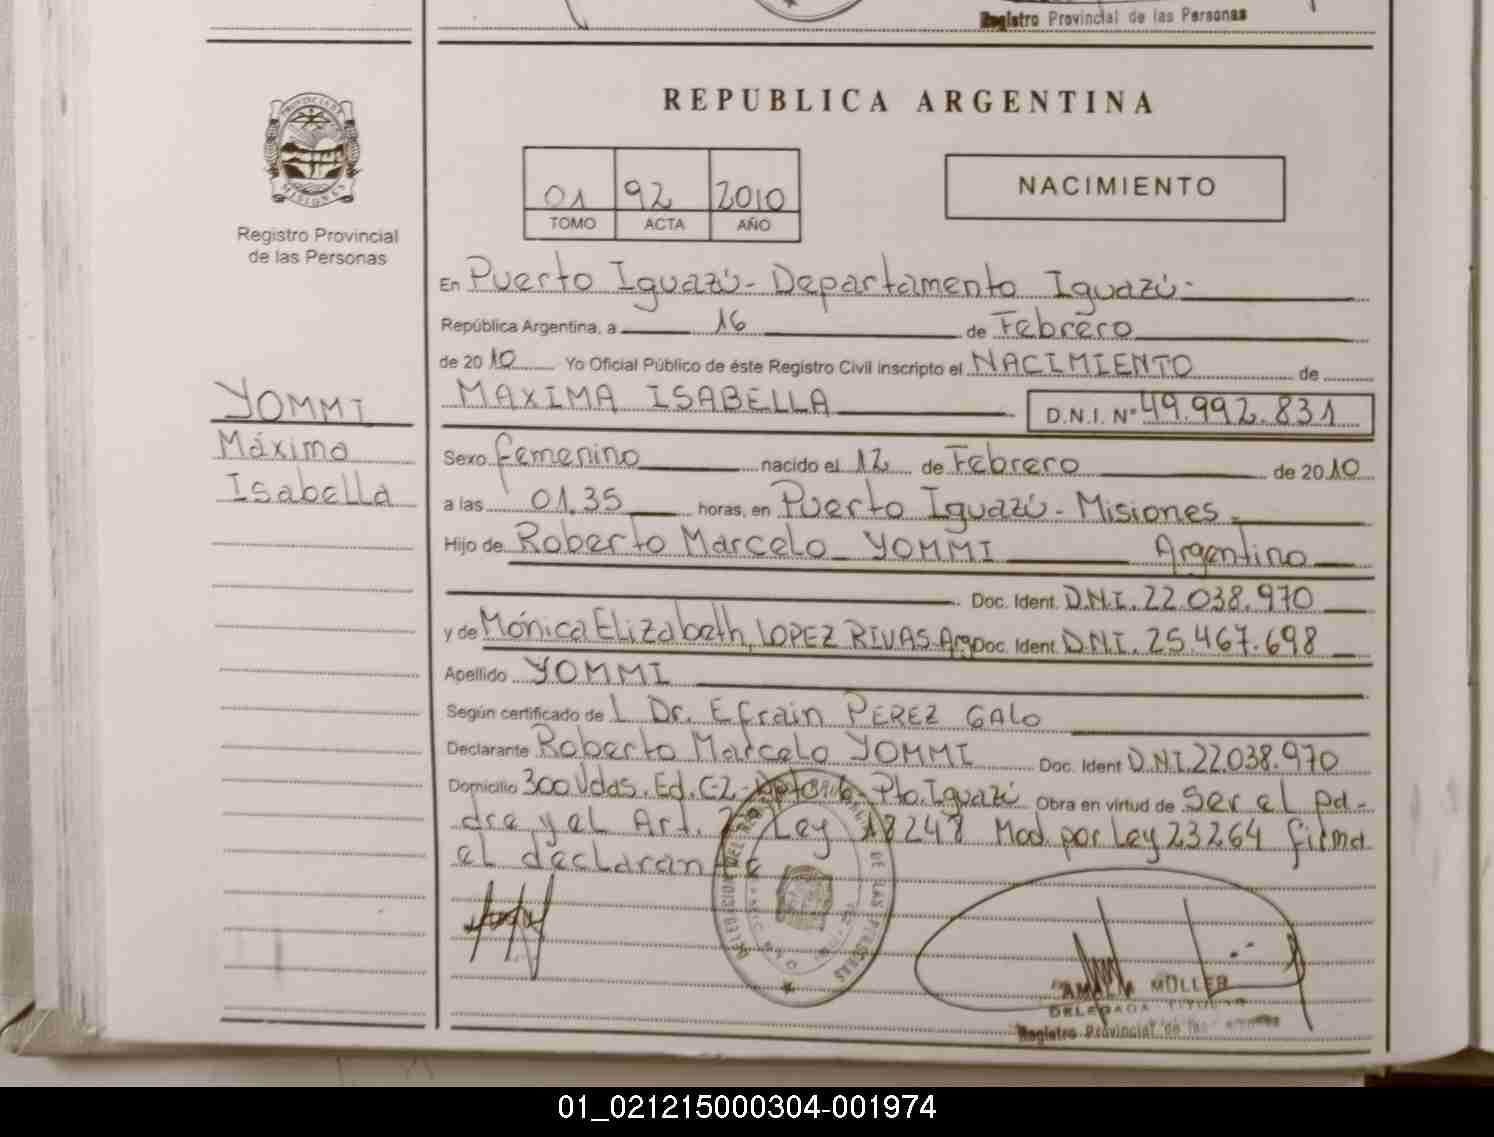 Registro Provincial de las Personas
REPUBLICA ARGENTINA
PROVINCIA DE
MISIONES
Registro Provincial
de las Personas
01 92 2010
TOMO ACTA AÑO
NACIMIENTO
En Puerto Iguazú - Departamento Iguazú -
República Argentina, a 16 de Febrero
de 2010 Yo Oficial Público de éste Registro Civil inscripto el NACIMIENTO de
MAXIMA ISABELLA D.N.I. Nº 49.992.831
YOMMI
Máxima
Isabella
Sexo femenino nacido el 12 de Febrero de 2010
a las 01.35 horas, en Puerto Iguazú - Misiones -
Hijo de Roberto Marcelo YOMMI Argentino
Doc. Ident. D.N.I. 22.038.970
y de Mónica Elizabeth, LOPEZ RIVAS Arg Doc. Ident. D.N.I. 25.467.698
Apellido YOMMI
Según certificado de L Dr. Efrain PEREZ GALO
Declarante Roberto Marcelo YOMMI Doc. Ident D.N.I. 22.038.970
Domicilio 300 Vdas. Ed. C-2 - Pto. Iguazú Obra en virtud de Ser el pa-
dre y el Art. Ley 18248 Mod. por Ley 23264 firma
el declarante
DE LAS PERSONAS
MÜLLER
DELEGADA TITULAR
Registro Provincial de las
01_021215000304-001974